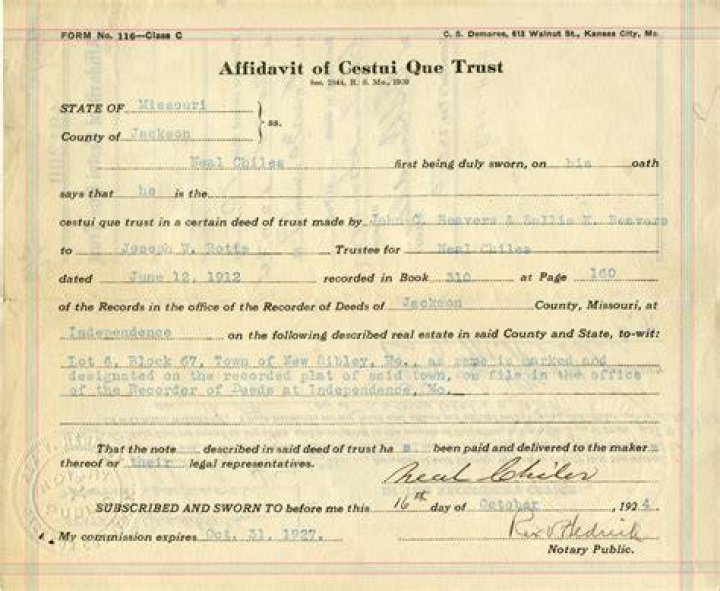 FORM No. 116—Class C C. S. Demaree, 613 Walnut St., Kansas City, Mo.
Affidavit of Cestui Que Trust
Sec. 2844, R. S. Mo., 1909
STATE OF Missouri
County of Jackson ss.
Neal Chiles first being duly sworn, on his oath
says that he is the
cestui que trust in a certain deed of trust made by John C. Beavers & Sallie K. Beavers
to Joseph W. Rotts Trustee for Neal Chiles
dated June 12, 1912 recorded in Book 310 at Page 160
of the Records in the office of the Recorder of Deeds of Jackson County, Missouri, at
Independence on the following described real estate in said County and State, to-wit:
Lot 6, Block 67, Town of New Sibley, Mo., as same is marked and
designated on the recorded plat of said town, on file in the office
of the Recorder of Deeds at Independence, Mo.
That the note described in said deed of trust ha s been paid and delivered to the maker s
thereof or their legal representatives.
Neal Chiles
SUBSCRIBED AND SWORN TO before me this 16th day of October, 1924
My commission expires Oct. 31, 1927. Rex V. Hedrick
Notary Public.